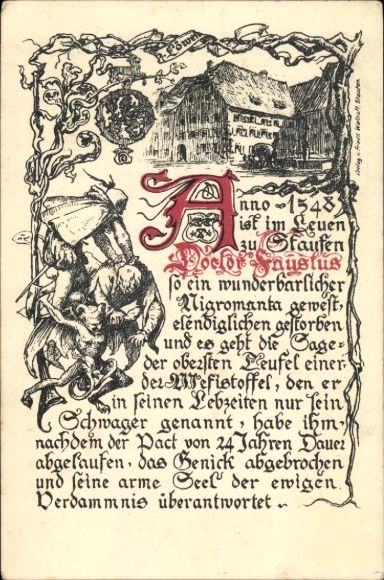 z. Löwen
Anno 1548
ist im Leuen
zu Staufen
Doctor Faustus
so ein wunderbarlicher
Nigromanta gewest,
elendiglichen gestorben
und es geht die Sage
der obersten Teufel einer
der Mefistoffel, den er
in seinen Lebzeiten nur sein
Schwager genannt, habe ihm,
nachdem der Pact von 24 Jahren Dauer
abgelaufen, das Genick abgebrochen
und seine arme Seel der ewigen
Verdammnis überantwortet.
Verlag v. Staufen.